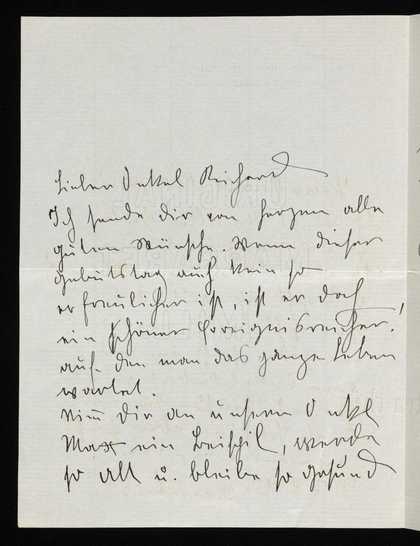 Lieber Onkel Richard
Ich sende dir von Herzen alle
guten Wünsche. Wenn dieser
Geburtstag auch kein so
erfreulicher ist, ist er doch
ein schöner ereignisreicher!
auf den man das ganze Leben
wartet.
Nim Dir an unserm Onkl
Max ein Beispil, werde
so alt u. bleibe so gesund